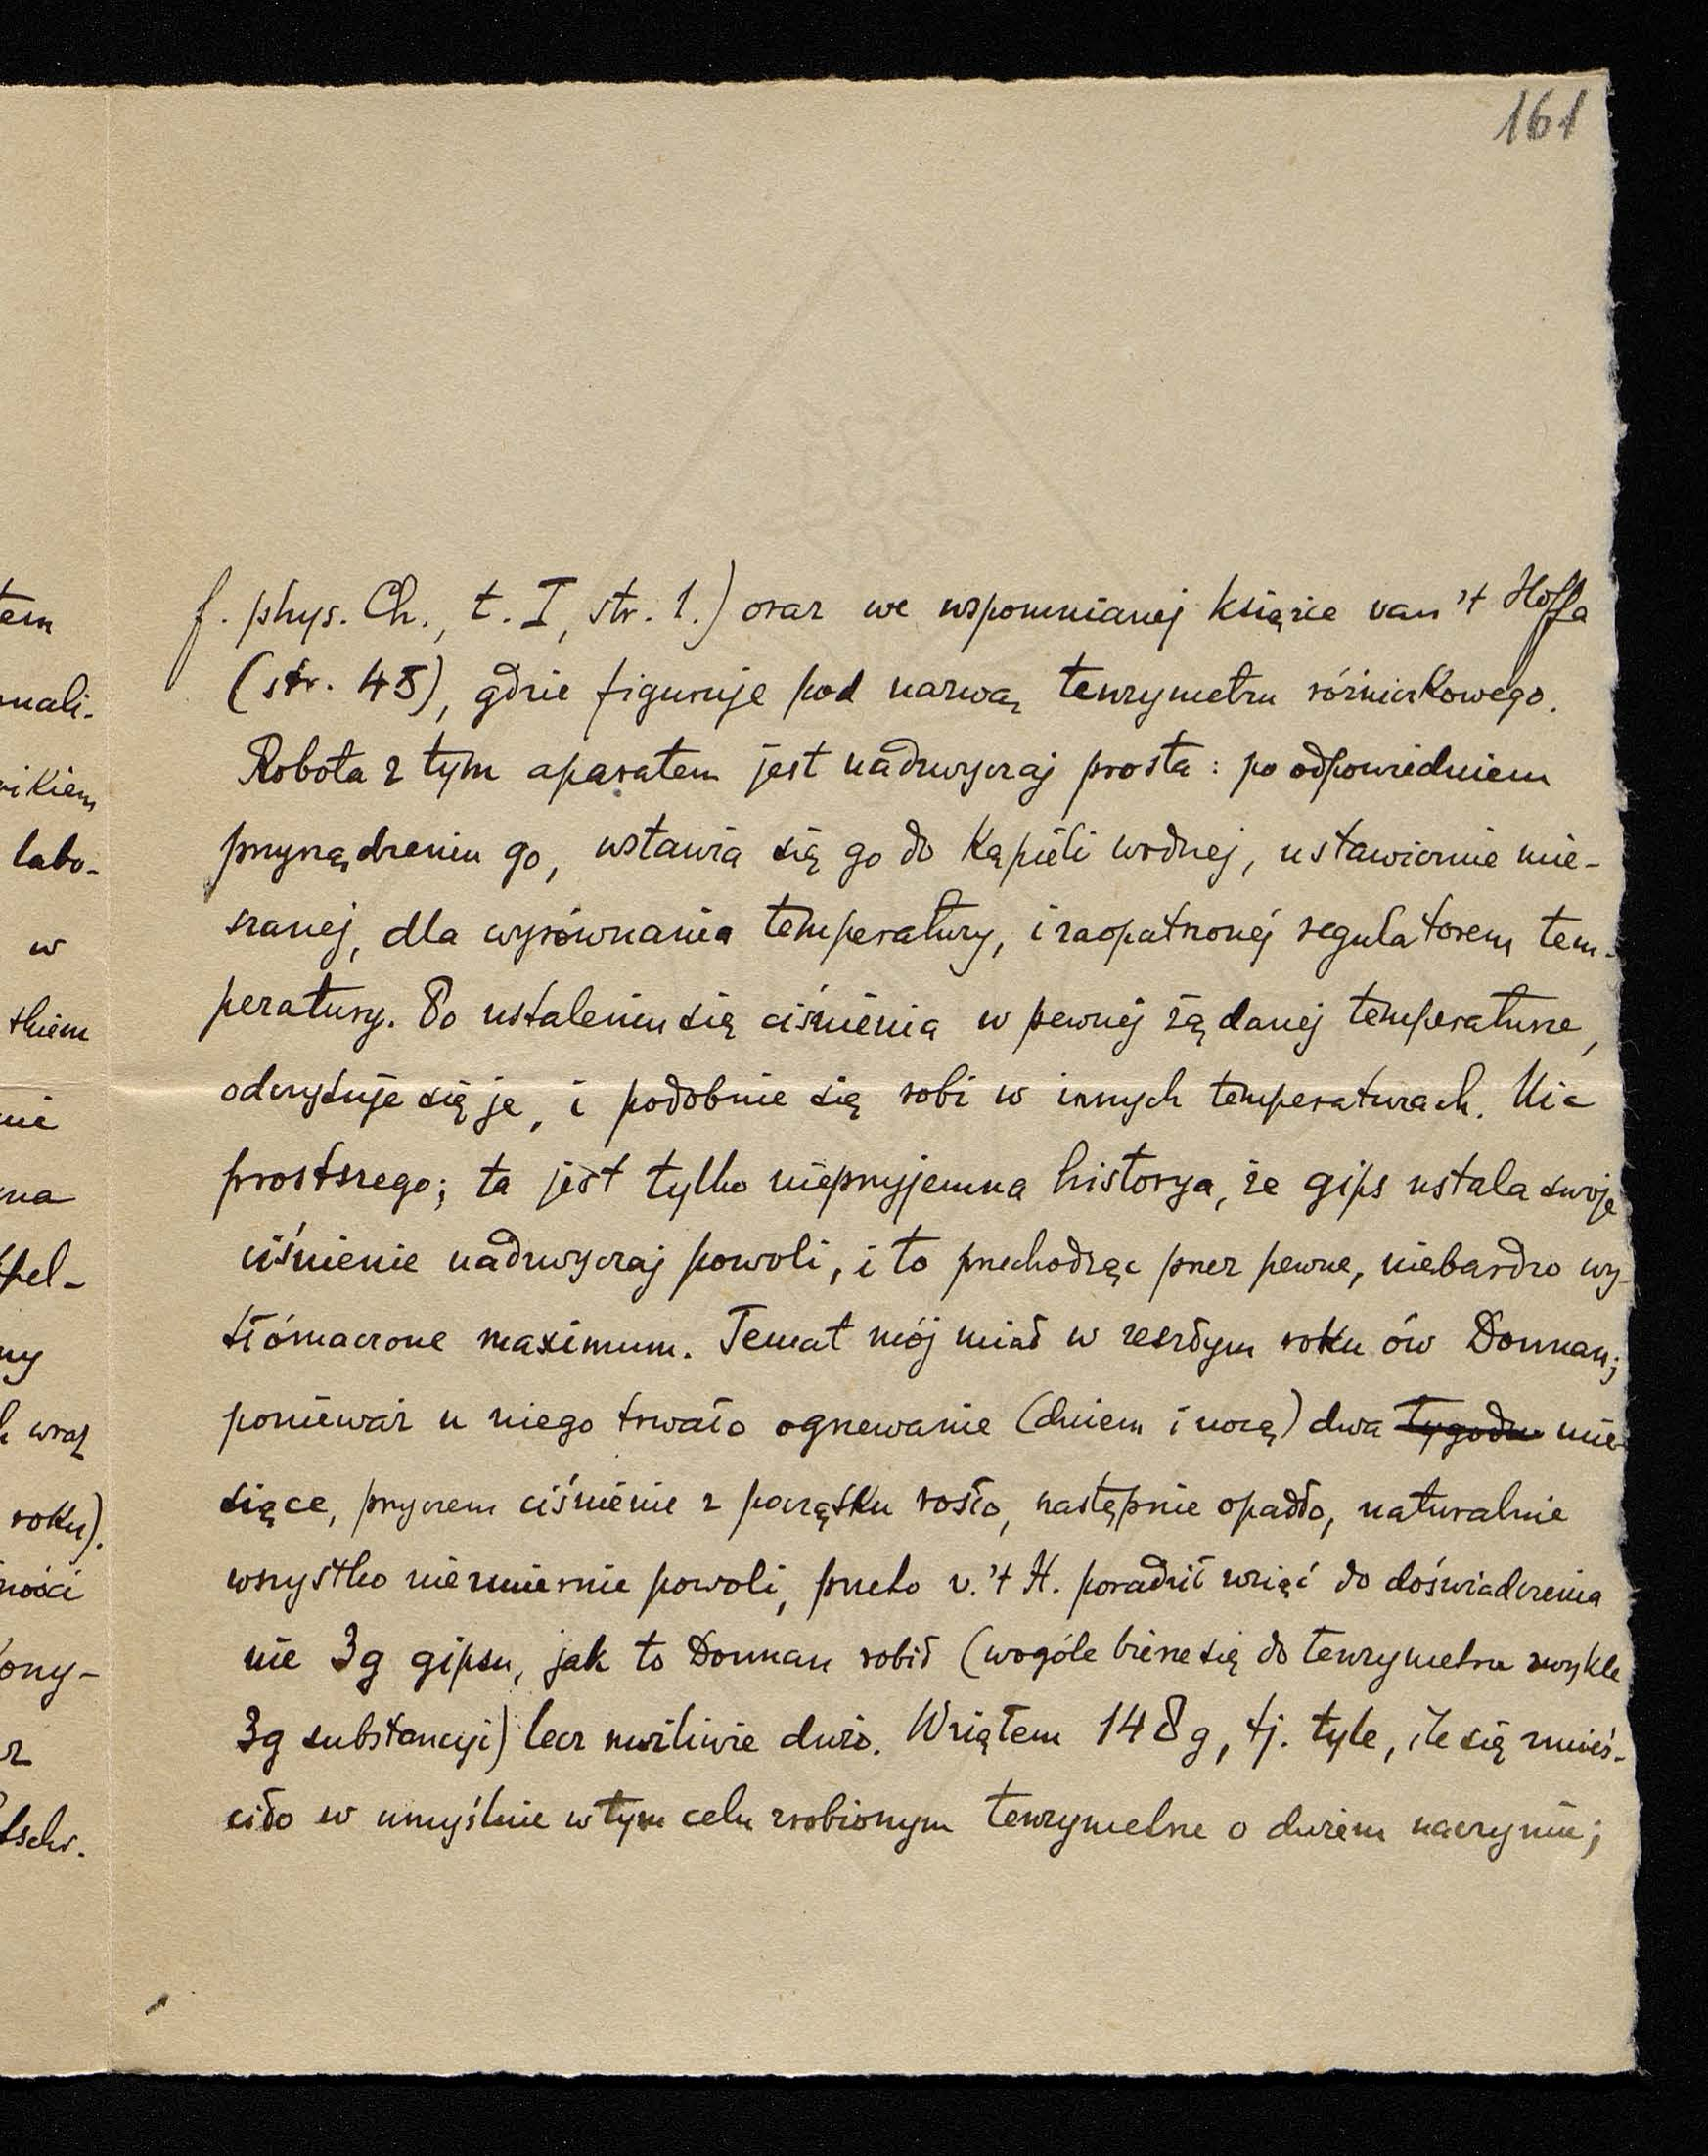 161
f. phys. Ch., t. I, str. 1.) oraz we wspomnianej książce van 't Hoffa
(str. 45), gdzie figuruje pod nazwą tenzymetru różniczkowego.
Robota z tym aparatem jest nadzwyczaj prosta: po odpowiedniem
przyrządzeniu go, wstawia się go do kąpieli wodnej, ustawicznie mie-
szanej, dla wyrównania temperatury, i zaopatrzonej regulatorem tem-
peratury. Po ustaleniu się ciśnienia w pewnej żądanej temperaturze,
odczytuje się je, i podobnie się robi w innych temperaturach. Nic
prostszego; ta jest tylko nieprzyjemna historya, że gips ustala swoje
ciśnienie nadzwyczaj powoli, i to przechodząc przez pewne, niebardzo wy-
tłómaczone maximum. Temat mój miał w zeszłym roku ów Donnan;
ponieważ u niego trwało ogrzewanie (dniem i nocą) dwa tygodn mie-
siące, przyczem ciśnienie z początku rosło, następnie opadło, naturalnie
wszystko niezmiernie powoli, przeto v. 't H. poradził wziąć do doświadczenia
nie 3g gipsu, jak to Donnan robił (wogóle bierze się do tenzymetru zwykle
3g substancyi) lecz możliwie dużo. Wziąłem 148g, tj. tyle, ile się zmieś-
ciło w umyślnie w tym celu zrobionym tenzymetrze o dużem naczyniu;
tem
mali-
nikiem
labo-
w
tkiem
nie
na
pel-
ny
wraz
roku).
ności
ony-
z
tschr.